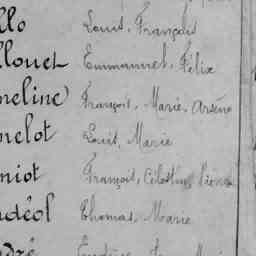 llo Louis, François
llouet Emmanuel, Félix
meline) François, Marie, Arsène
melot Louis, Marie
miot François, Célestin,
ndéol Thomas, Marie